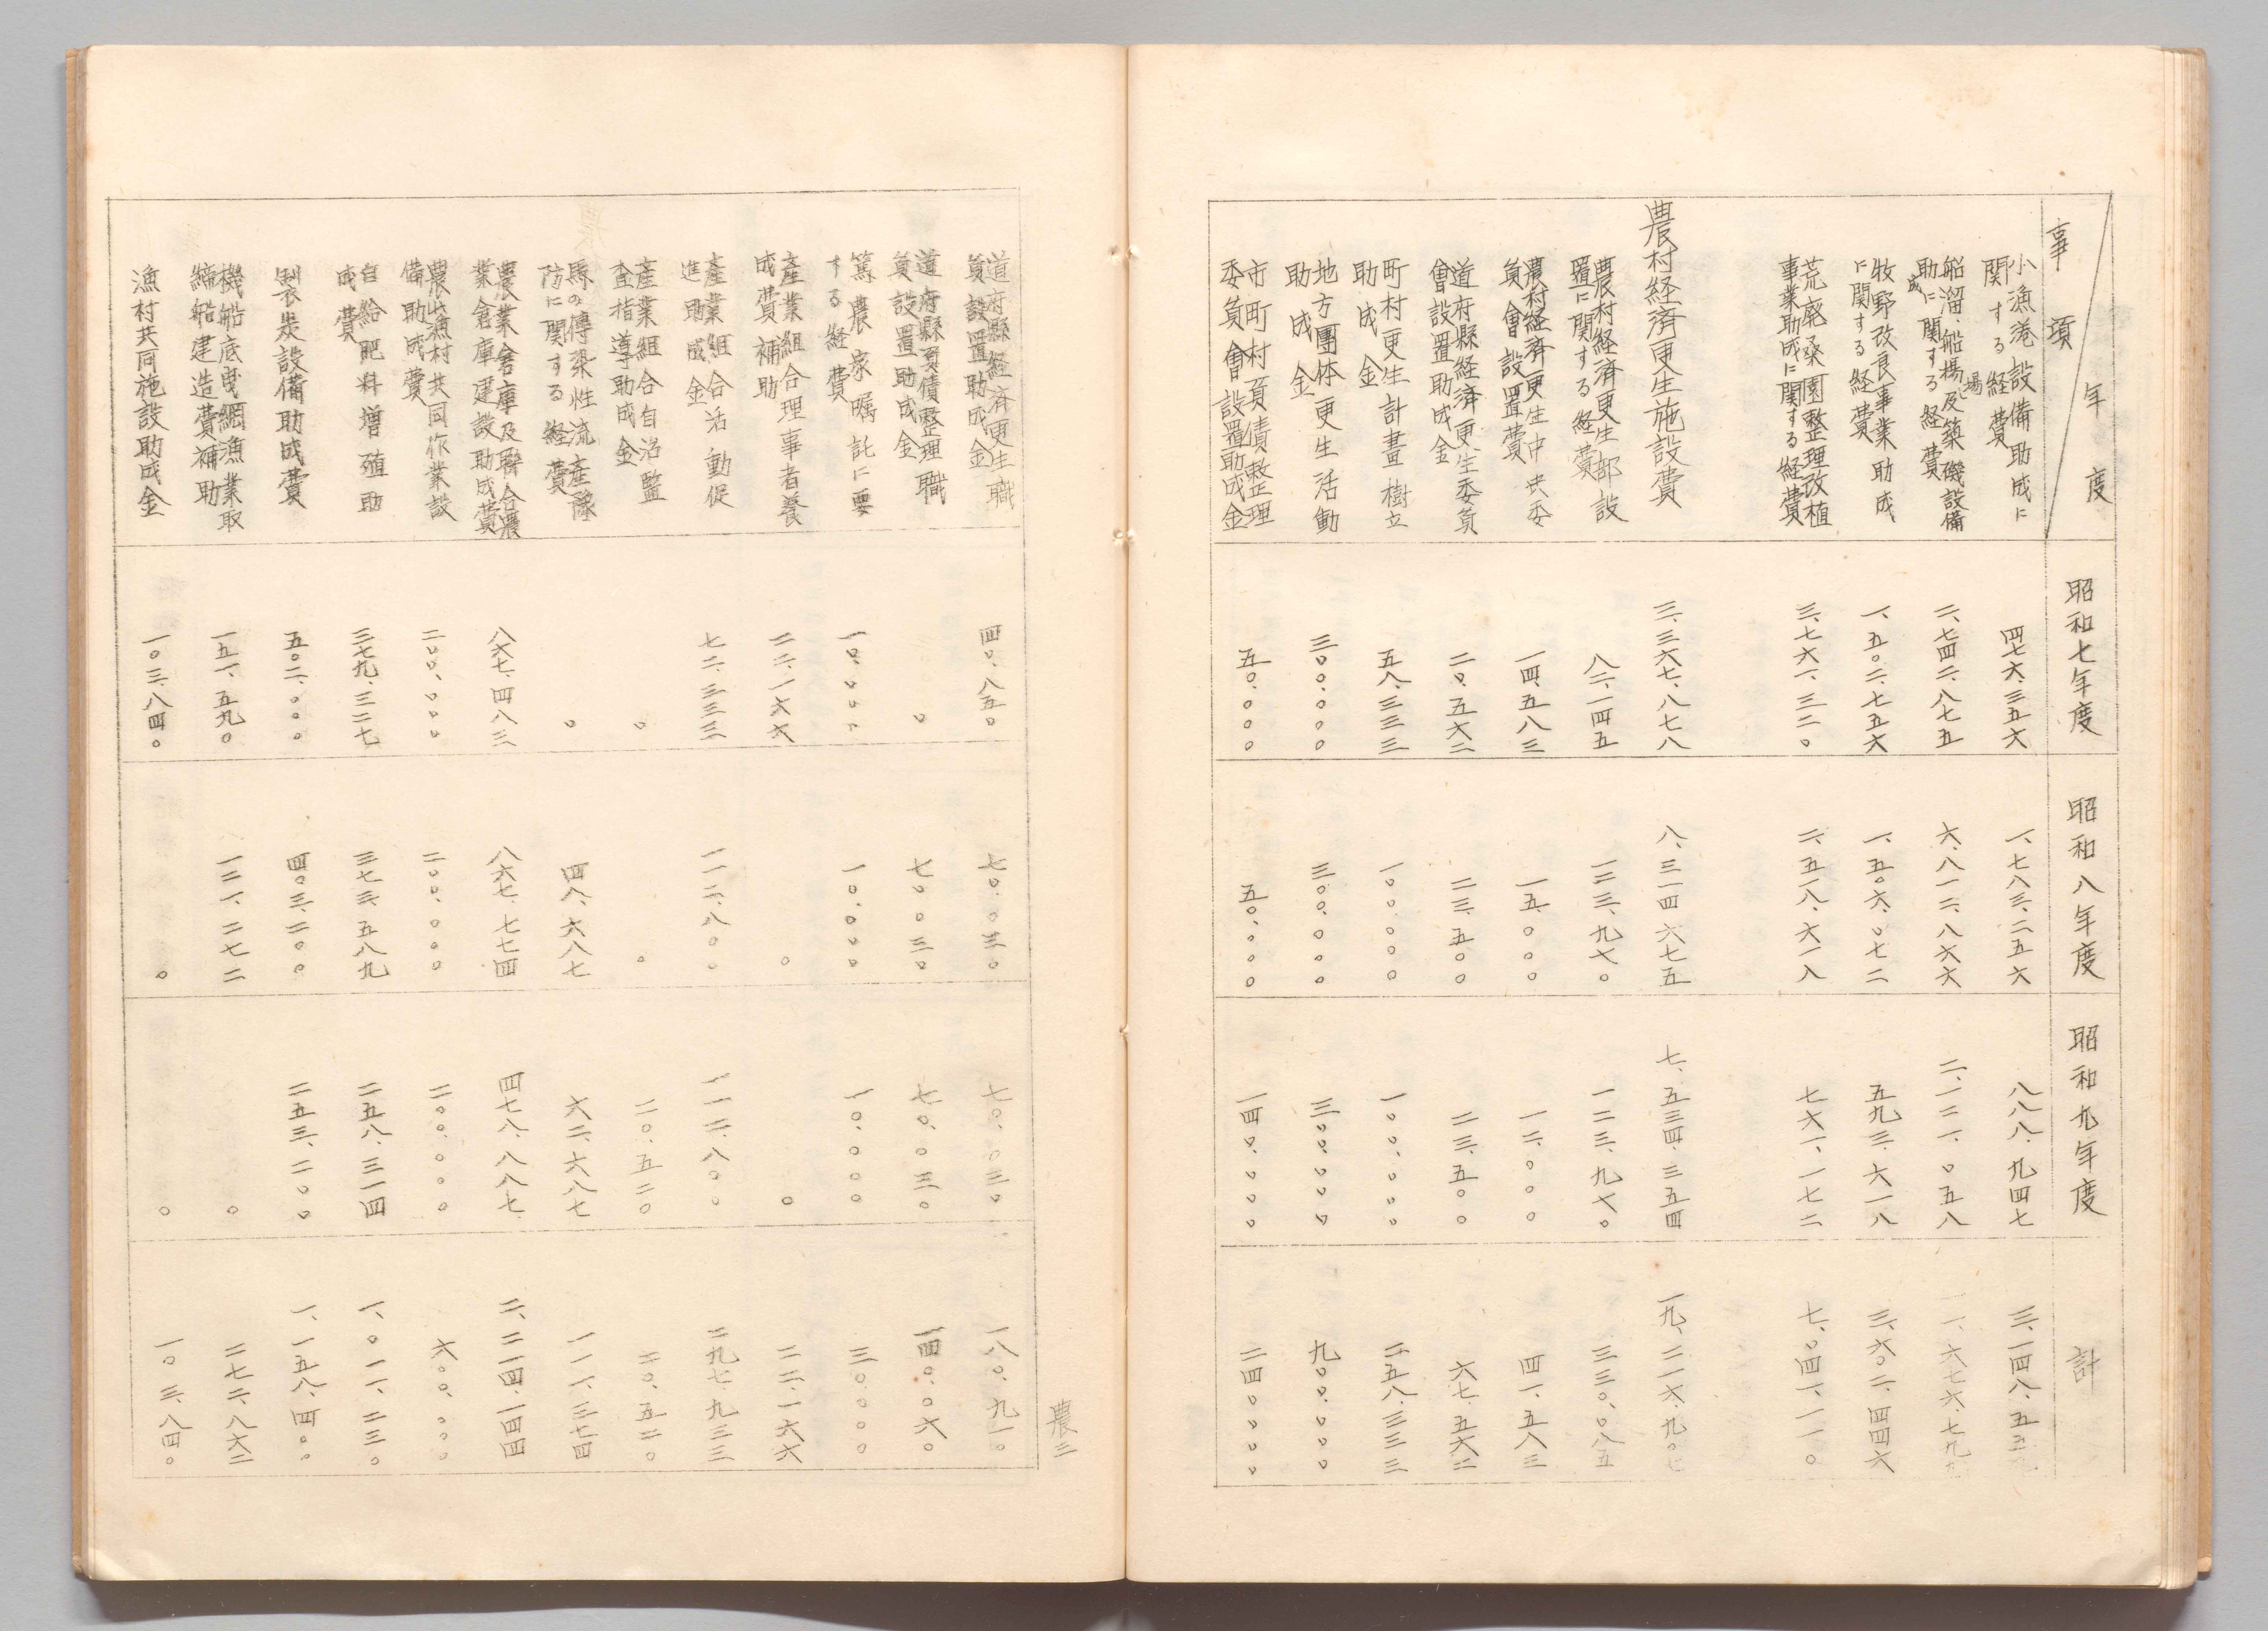 事項 年度 昭和七年度 昭和八年度 昭和九年度 計
小漁港設備助成に
関する経費 四七六、三五六 一、七八三、二五六 八八八、九四七 三、一四八、五五九
船溜、船揚場及築磯設備
助成に関する経費 二、七四二、八七五 六、八一二、八六六 二、一二一、〇五八 一一、六七六、七九九
牧野改良事業助成
に関する経費 一、五〇二、七五六 一、五〇六、〇七二 五九三、六一八 三、六〇二、四四六
荒廃桑園整理改植
事業助成に関する経費 三、七六一、三二〇 二、五一八、六一八 七六一、一七二 七、〇四一、一一〇
農村経済更生施設費 三、三六七、八七八 八、三一四六七五 七、五三四、三五四 一九、二一六、九〇七
農村経済更生部設
置に関する経費 八二、一四五 一二三、九七〇 一二三、九七〇 三三〇、〇八五
農村経済更生中央委
員會設置費 一四、五八三 一五、〇〇〇 一二、〇〇〇 四一、五八三
道府縣経済更生委員
會設置助成金 二〇、五六二 二三、五〇〇 二三、五〇〇 六七、五六二
町村更生計畫樹立
助成金 五八、三三三 一〇〇、〇〇〇 一〇〇、〇〇〇 二五八、三三三
地方團体更生活動
助成金 三〇〇、〇〇〇 三〇〇、〇〇〇 三〇〇、〇〇〇 九〇〇、〇〇〇
市町村負債整理
委員會設置助成金 五〇、〇〇〇 五〇、〇〇〇 一四〇、〇〇〇 二四〇〇〇〇
農三
道府縣経済更生職
員設置助成金 四〇、八五〇 七〇、〇三〇 七〇、〇三〇 一八〇、九一〇
道府縣負債整理職
員設置助成金 〇 七〇〇三〇 七〇、〇三〇 一四〇、〇六〇
篤農家嘱託に要
する経費 一〇、〇〇〇 一〇、〇〇〇 一〇、〇〇〇 三〇、〇〇〇
產業組合理事者養
成費補助 二二、一六六 〇 〇 二二、一六六
產業組合活動促
進助成金 七二、三三三 一一二、八〇〇 一一二、八〇〇 二九七、九三三
產業組合自治監
査指導助成金 〇 〇 二〇、五二〇 二〇、五二〇
馬の傳染性流產豫
防に関する経費 〇 四八、六八七 六二、六八七 一一一、三七四
農業倉庫及聯合農
業倉庫建設助成費 八六七、四八三 八六七、七七四 四七八、八八七 二、二一四、一四四
農山漁村共同作業設
備助成費 二〇〇、〇〇〇 二〇〇、〇〇〇 二〇〇、〇〇〇 六〇〇、〇〇〇
自給肥料增殖助
成費 三七九、三二七 三七三、五八九 二五八、三一四 一、〇一一、二三〇
製炭設備助成費 五〇二、〇〇〇 四〇三、二〇〇 二五三、二〇〇 一、一五八、四〇〇
機船底曳網漁業取
締船建造費補助 一五一、五九〇 一二一、二七二 〇 二七二、八六二
漁村共同施設助成金 一〇三、八四〇 〇 〇 一〇三、八四〇